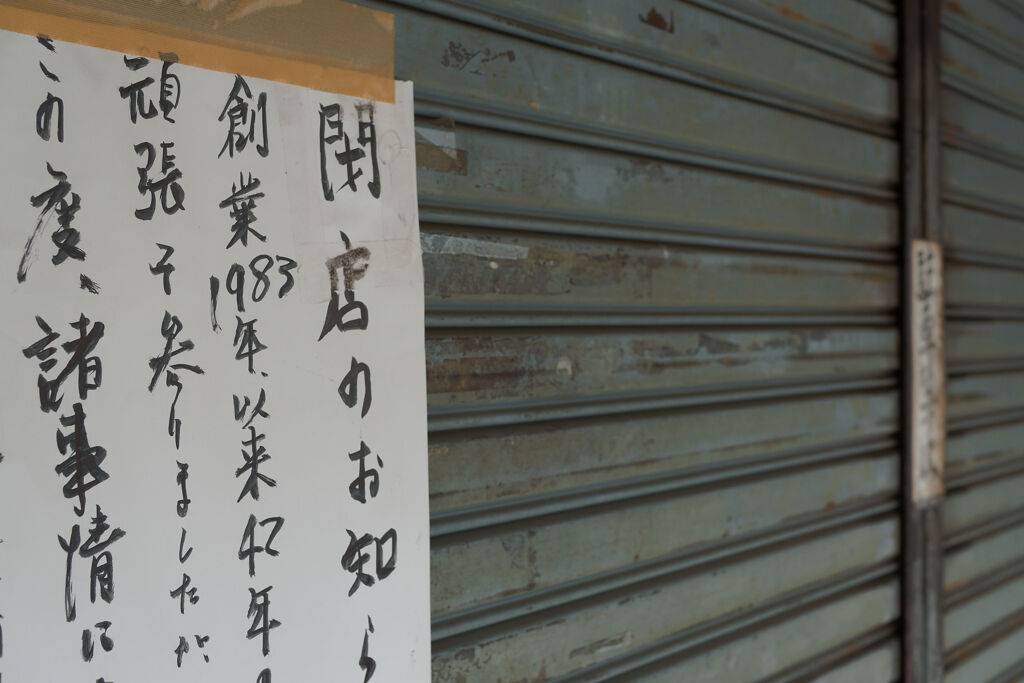 閉店のお知ら
創業1983年以来42年
頑張って参りましたが
この度、諸事情に